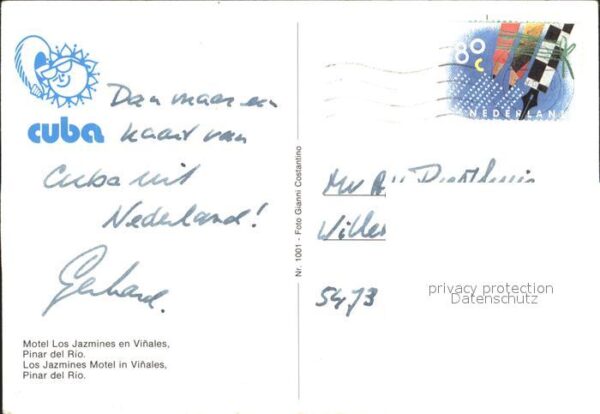 cuba
Dan maar een
kaart van
Cuba uit
Nederland!
Gerhard.
Motel Los Jazmines en Viñales,
Pinar del Rio.
Los Jazmines Motel in Viñales,
Pinar del Rio.
Nr. 1001 - Foto Gianni Costantino
80
c
NEDERLAN
Mv
Wille
5473
privacy protection
Datenschutz